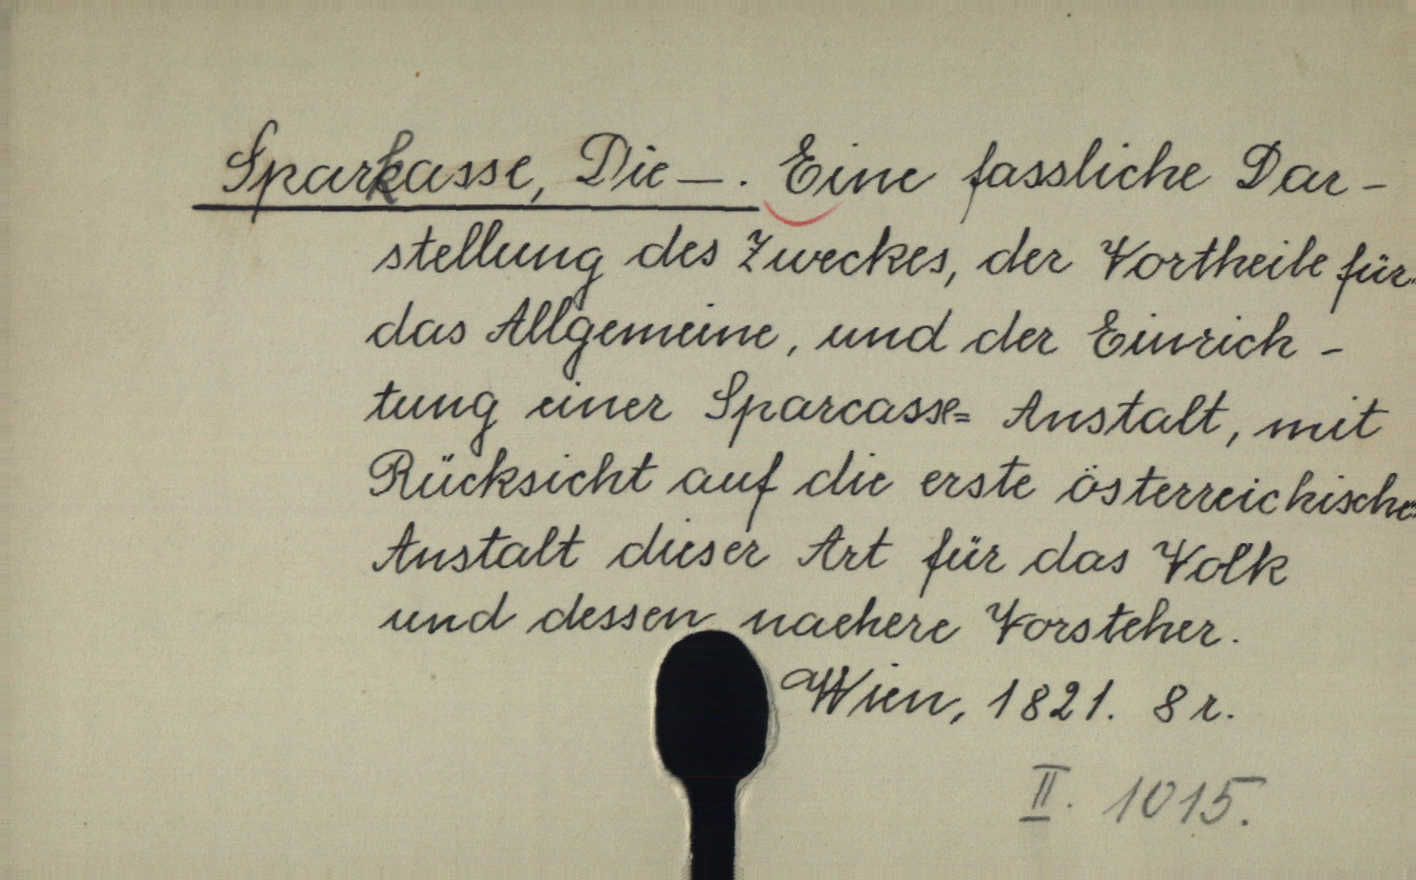 Sparkasse, Die —. Eine fassliche Dar-
stellung des Zweckes, der Vortheile für
das Allgemeine, und der Einrich-
tung einer Sparcasse= Anstalt, mit
Rücksicht auf die erste österreichische
Anstalt dieser Art für das Volk
und dessen naehere Vorsteher.
Wien, 1821. 8r.
II. 1015.